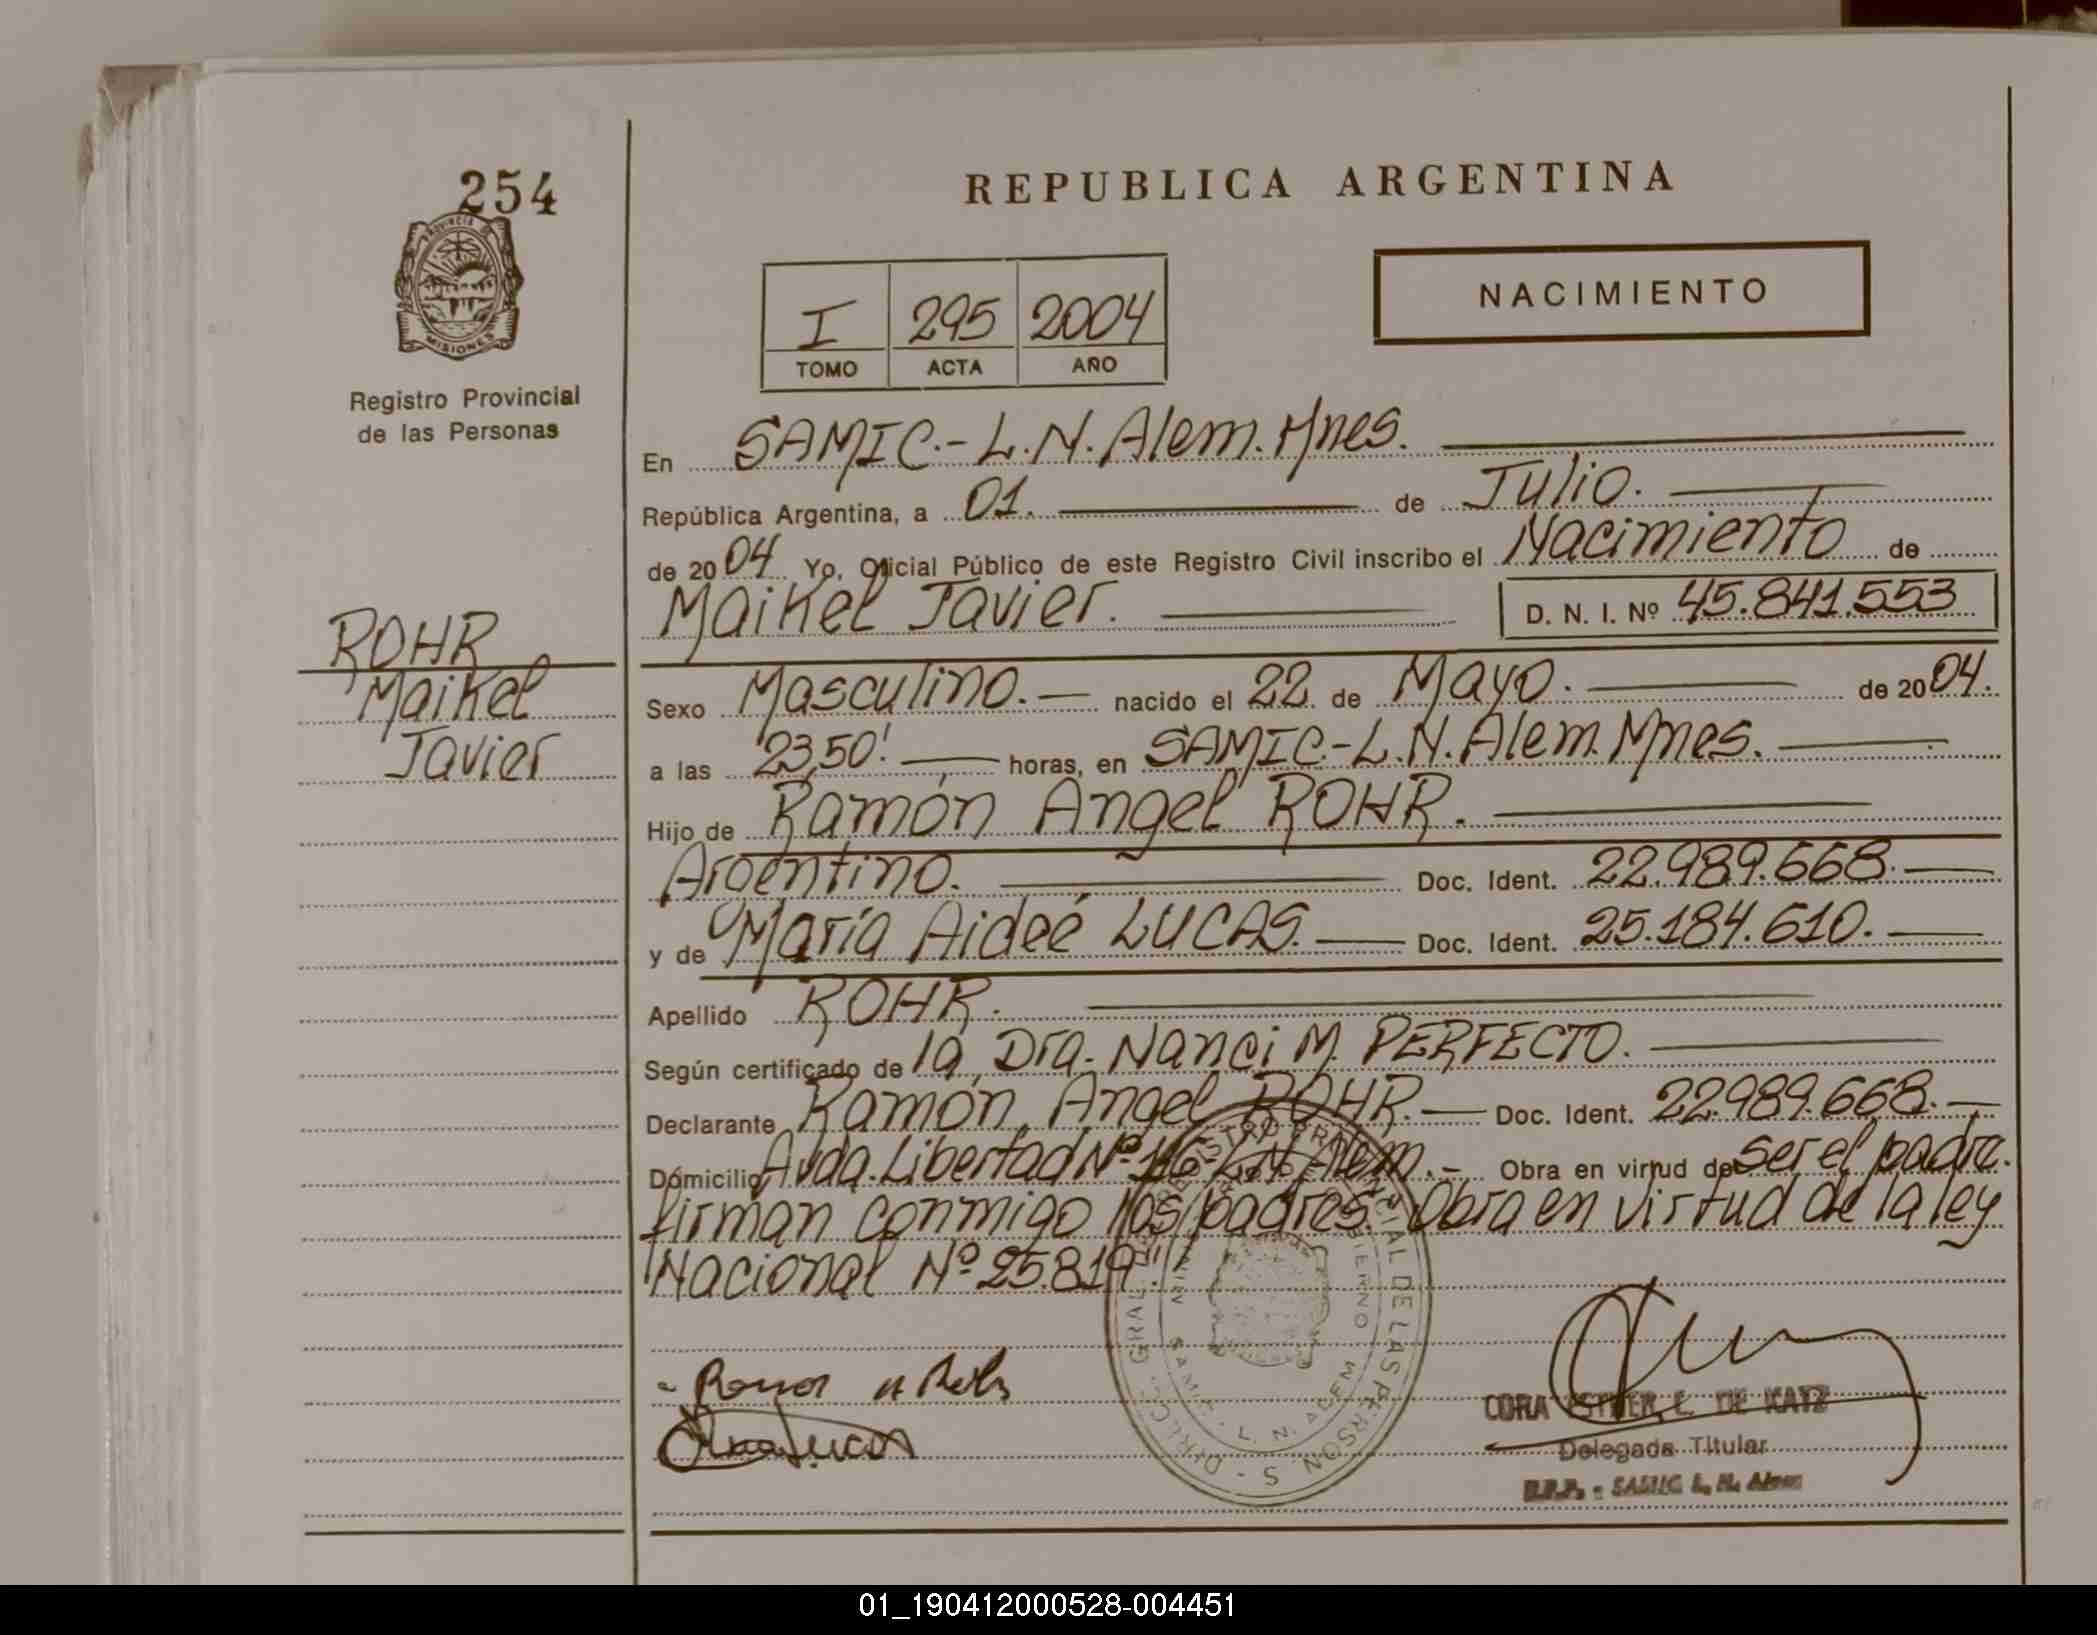 254
PROVINCIA DE
MISIONES
Registro Provincial
de las Personas
ROHR
Maikel
Javier
REPUBLICA ARGENTINA
I 295 2004
TOMO ACTA AÑO
NACIMIENTO
En SAMIC.-L.N.Alem.Mnes.
República Argentina, a 01. de Julio.
de 2004 Yo, Oficial Público de este Registro Civil inscribo el Nacimiento de
Maikel Javier. D. N. I. Nº 45.841.553
Sexo Masculino. nacido el 22. de Mayo. de 2004.
a las 23,50'. horas, en SAMIC.-L.N.Alem.Mnes.
Hijo de Ramón Angel ROHR.
Argentino. Doc. Ident. 22.989.668.
y de María Aideé LUCAS. Doc. Ident. 25.184.610.
Apellido ROHR.
Según certificado de la Dra. Nanci M. PERFECTO.
Declarante Ramón Angel ROHR. Doc. Ident. 22.989.668.
Domicilio Avda. Libertad Nº L.N.Alem. Obra en virtud de ser el padre.
firman conmigo los padres. Obra en virtud de la ley
Nacional Nº 25.819".
CORA ESTHER L. DE KATZ
Delegada Titular
R.P.P. - SAMIC L. N. Alem
01_190412000528-004451